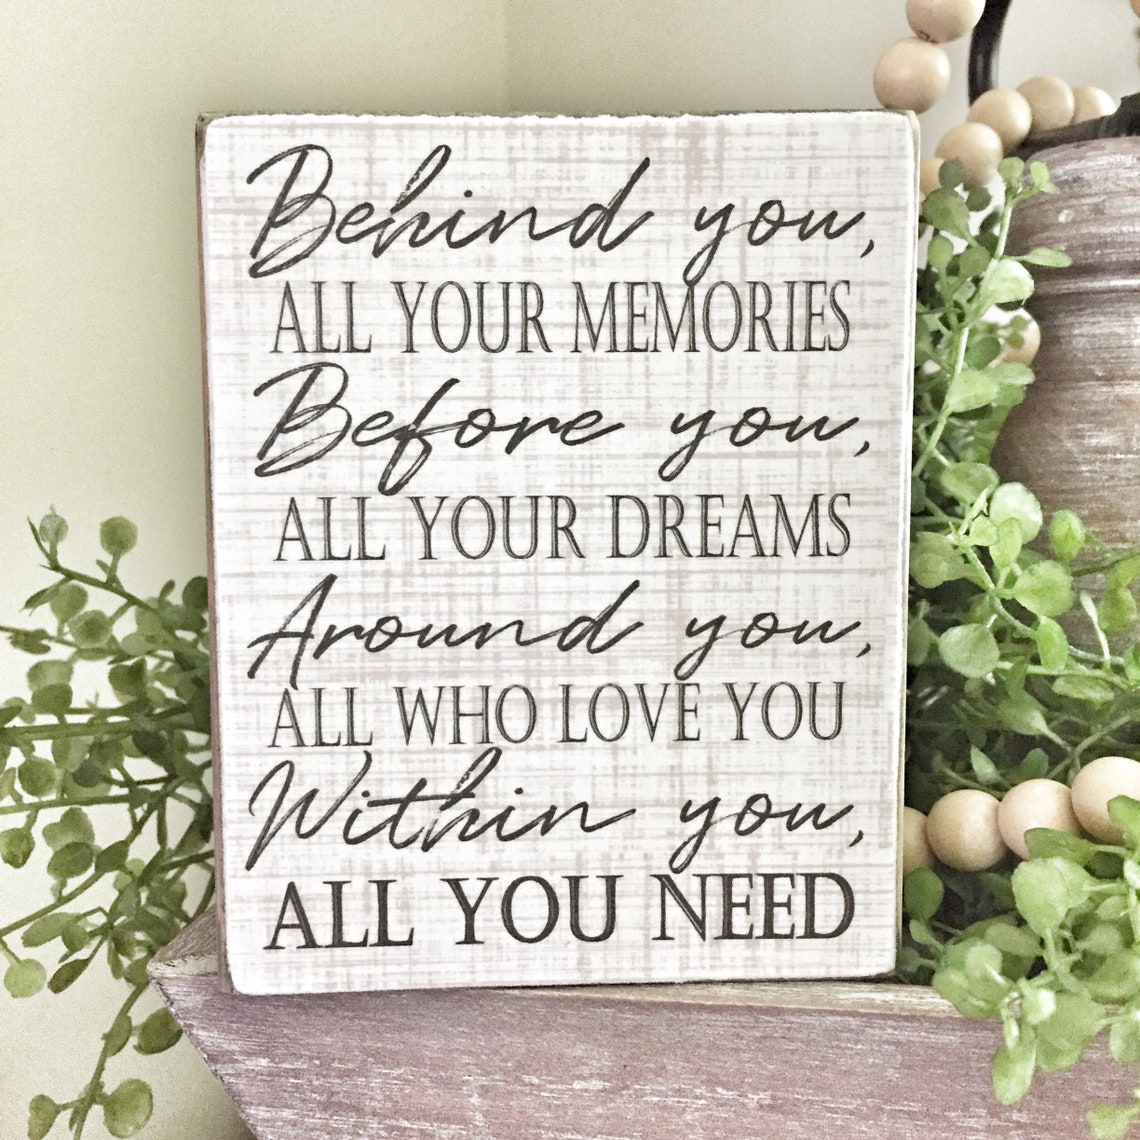 Behind you,
ALL YOUR MEMORIES
Before you,
ALL YOUR DREAMS
Around you,
ALL WHO LOVE YOU
Within you,
ALL YOU NEED